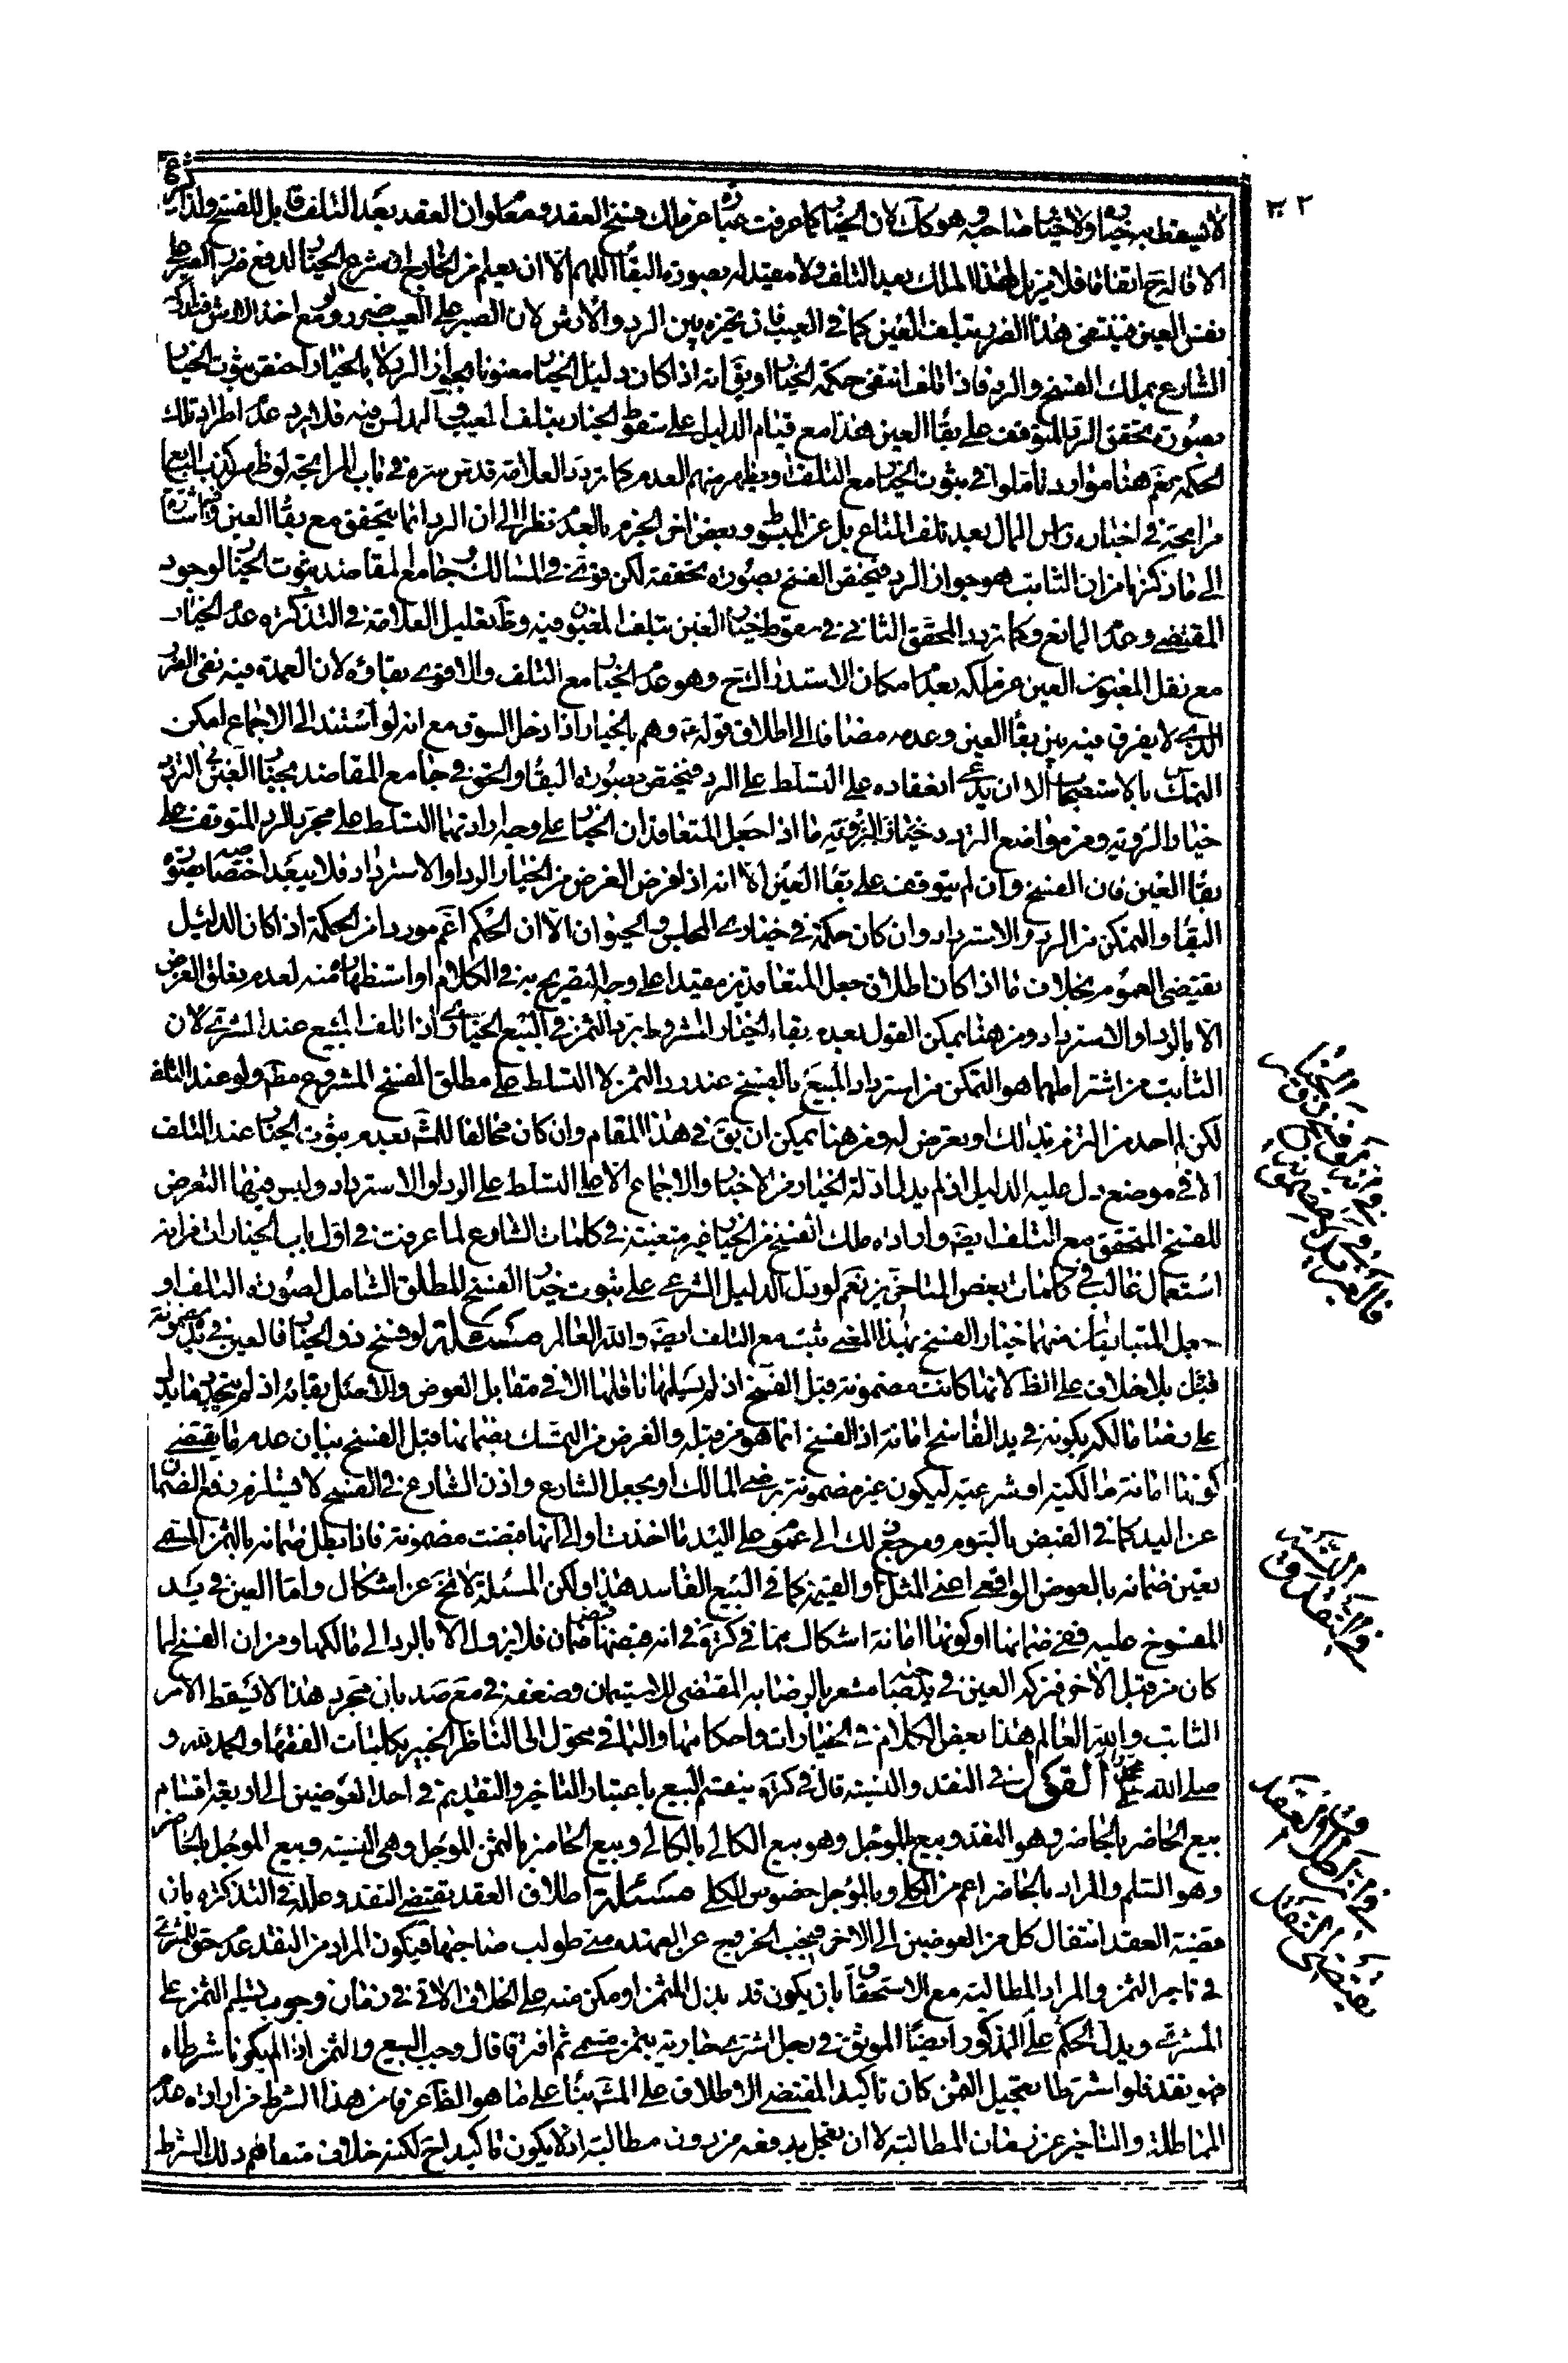 لا يسقط به خياره ولا خيار صاحبه وهو كك لان الخيار كما عرفت عبارة عن ملك فسخ العقد ومعلوم ان العقد بعد التلف قابل للفسخ ولذا تشرع
الاقالة ح اتفاقا فلا مزيل لهذا الملك بعد التلف ولا مقيد له بصورة البقاء اللهم الا ان يعلم من الخارج ان شرع الخيار لدفع ضرر الصبر على
نفس العين فينتفى هذا الضرر بتلف العين كما في العيب فان تخيره بين الرد والارش لان الصبر على العيب ضرر ولو مع اخذ الارش فتداركه
الشارع بملك الفسخ والرد فاذا تلف انتفى حكمة الخيار او يق انه اذا كان دليل الخيار معنونا بجواز الرد لا بالخيار اختص ثبوت الخيار
بصورة تحقق الرد المتوقف على بقاء العين هذا مع قيام الدليل على سقوط الخيار بتلف المعيب والمدلس فيه فلا يرد عدم اطراد تلك
الحكمة نعم هنا موارد تاملوا في ثبوت الخيار مع التلف او يظهر منهم العدم كما تردد العلامة قدس سره في باب المرابحة لو ظهر كذب البايع
مرابحة في اخباره براس المال بعد تلف المتاع بل عن المبسوط وبعض اخر الجزم بالعدم نظرا الى ان الرد انما يتحقق مع بقاء العين وفيه اشارة
الى ما ذكرنا من ان الثابت هو جواز الرد فيختص الفسخ بصورة تحققه لكن قوى في المسالك وجامع المقاصد ثبوت الخيار لوجود
المقتضى وعدم المانع وكما تردد المحقق الثاني في سقوط خيار الغبن بتلف المغبون فيه وظ تعليل العلامة في التذكرة عدم الخيار
مع نقل المغبون العين عن ملكه بعدم امكان الاستدراك ح وهو عدم الخيار مع التلف والاقوى بقاؤه لان العمدة فيه نفى الضرر
الذى لا يفرق فيه بين بقاء العين وعدمه مضافا الى اطلاق قوله ع وهم بالخيار اذا دخل السوق مع انه لو استند الى الاجماع امكن
التمسك بالاستصحاب الا ان يدعى انعقاده على التسلط على الرد فيختص بصورة البقاء والحق في جامع المقاصد بخيار الغبن في التردد
خيار الرؤية ومن مواضع التردد ما اذا جعل المتعاقدان الخيار على وجه ارادتهما التسلط على مجرد الرد المتوقف على
بقاء العين فان الفسخ وان لم يتوقف على بقاء العين الا انه اذا فرض الغرض من الخيار الرد او الاسترداد فلا يبعد اختصاصه بصورة
البقاء والتمكن من الرد والاسترداد وان كان حكمة في خيارى المجلس والحيوان الا ان الحكم اعم موردا من الحكمة اذا كان الدليل
يقتضى العموم بخلاف ما اذا كان اطلاق جعل المتعاقدين مقيدا على وجه التصريح به في الكلام او استظهار منه لعدم تعلق الغرض
الا بالرد او الاسترداد ومن هنا يمكن القول بعدم بقاء الخيار المشروط برد الثمن في البيع الخيارى اذا تلف المبيع عند المشترى لان
الثابت من اشتراطهما هو التمكن من استرداد المبيع بالفسخ عند رد الثمن لا التسلط على مطلق الفسخ المشروع مطلقا ولو عند التلف
لكن لم اجد من التزم بذلك او تعرض له ومن هنا يمكن ان يق في هذا المقام وان كان مخالفا للمشهور بعدم ثبوت الخيار عند التلف
الا في موضع دل عليه الدليل اذ لم يدل ادلة الخيار من الاخبار والاجماع الا على التسلط على الرد او الاسترداد وليس فيهما التعرض
للفسخ المتحقق مع التلف ايضا وارادة ملك الفسخ من الخيار غير متعينة في كلمات الشارع لما عرفت في اول باب الخيارات من انه
استعمال غالب في كلمات بعض المتاخرين نعم لو دل الدليل الشرعى على ثبوت خيار الفسخ المطلق الشامل لصورة التلف او
جعل المتبايعان بينهما خيار الفسخ بهذا المعنى ثبت مع التلف ايضا والله العالم مسئلة لو فسخ ذو الخيار فالعين في يده مضمونة
بلا خلاف على الظ لانها كانت مضمونة قبل الفسخ اذ لم يسلمها ناقلها الا في مقابل العوض والاصل بقائه اذ لم يتجدد ما يدل
على رضا مالكه بكونه في يد الفاسخ امانة اذ الفسخ انما هو من قبله والغرض من التمسك بضمانها قبل الفسخ بيان عدم ما يقتضى
كونها امانة مالكية او شرعية ليكون غير مضمونة برضى المالك او بجعل الشارع واذن الشارع في الفسخ لا يستلزم رفع الضمان
عن اليد كما في القبض بالسوم ومرجع ذلك الى عموم على اليد ما اخذت او الى انها قبضت مضمونة فاذا بطل ضمانه بالثمن المسمى
تعين ضمانه بالعوض الواقعى اعنى المثل او القيمة كما في البيع الفاسد هذا ولكن المسئلة لا تخ عن اشكال واما العين في يد
المفسوخ عليه ففى ضمانها او كونها امانة اشكال مما في كرة من انه قبضها قبض ضمان فلا يزول الا بالرد الى مالكها ومن ان الفسخ لما
كان من قبل الاخر فتركه العين في يد صاحبه مشعر بالرضا به المقتضى للاستيمان وضعفه في مع صد بان مجرد هذا لا يسقط الامر
الثابت والله العالم هذا بعض الكلام في الخيارات واحكامها والباقي محول الى الناظر الخبير بكلمات الفقهاء والحمد لله و
صلى الله على محمد وآله القول في النقد والنسية قال في كرة ينقسم البيع باعتبار التاخير والتقديم في احد العوضين الى اربعة اقسام
بيع الحاضر بالحاضر وهو النقد وبيع المؤجل بالمؤجل وهو بيع الكالى بالكالى وبيع الحاضر بالثمن المؤجل وهى النسية وبيع المؤجل بالحاضر
وهو السلم والمراد بالحاضر اعم من الكلى وبالمؤجل خصوص الكلى مسئلة اطلاق العقد يقتضى النقد وعلله في التذكرة بان
قضية العقد انتقال كل من العوضين الى الاخر فيجب الخروج عن العهدة متى طولب صاحبها فيكون المراد من النقد عدم حق للمشترى
في تاخير الثمن والمراد المطالبة مع الاستحقاق بان يكون قد بذل المثمن او مكن منه على الخلاف الاتى في زمان وجوب تسليم الثمن على
المشترى ويدل على الحكم المذكور ايضا الموثق في رجل اشترى جارية بثمن مسمى ثم افترقا قال وجب البيع والثمن اذا لم يكونا شرطا
فهو نقد فلو اشترطا تعجيل الثمن كان تاكيدا لمقتضى الاطلاق على المش بناء على ما هو الظ عرفا من هذا الشرط من ارادة عدم
المماطلة والتاخير عن زمان المطالبة لا ان يعجل بدفعه من دون مطالبة اذ لا يكون تاكيدا ح لكنه خلاف متفاهم ذلك الشرط